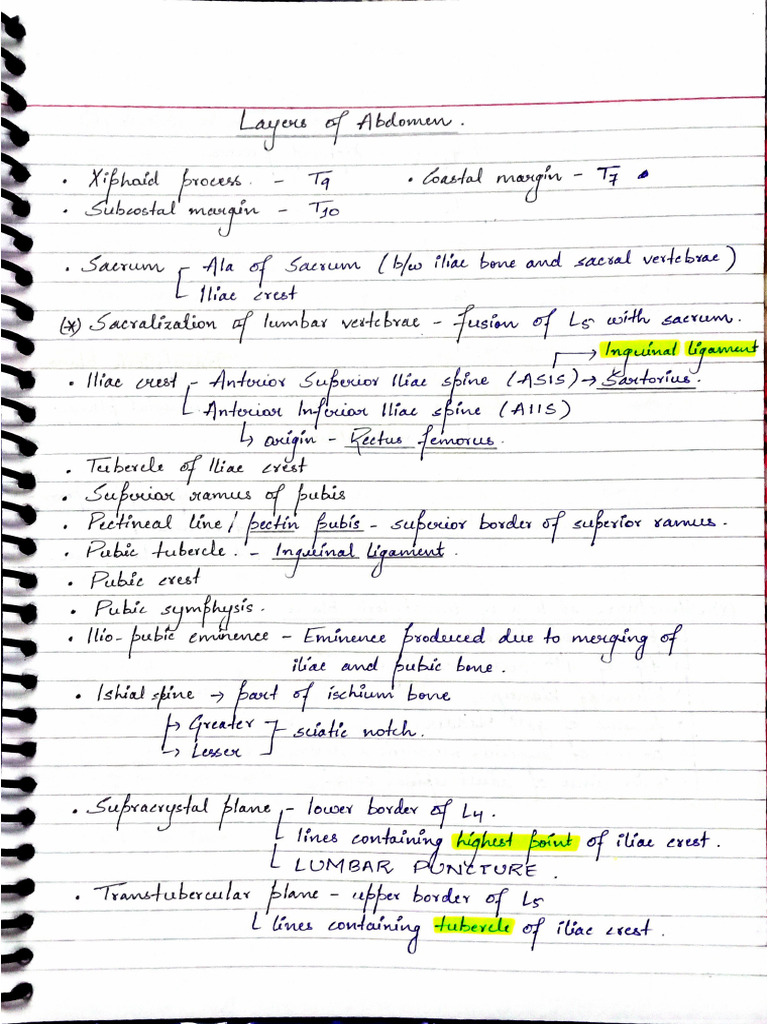 Layers of Abdomen.
• Xiphoid process. - T9 • Coastal margin - T7
• Subcostal margin - T10
• Sacrum - Ala of Sacrum (b/w iliac bone and sacral vertebrae)
Iliac crest
(*) Sacralization of lumbar vertebrae - fusion of L5 with sacrum.
→ Inguinal ligament
• Iliac crest - Anterior Superior Iliac spine (ASIS) → Sartorius.
Anterior Inferior Iliac spine (AIIS)
↳ origin - Rectus femorus.
• Tubercle of Iliac crest
• Superior ramus of pubis
• Pectineal line / pectin pubis - superior border of superior ramus.
• Pubic tubercle. - Inguinal ligament.
• Pubic crest
• Pubic symphysis.
• Ilio-pubic eminence - Eminence produced due to merging of
iliac and pubic bone.
• Ishial spine → part of ischium bone
→ Greater
→ Lesser - sciatic notch.
• Supracrystal plane - lower border of L4.
lines containing highest point of iliac crest.
LUMBAR PUNCTURE.
• Transtubercular plane - upper border of L5
lines containing tubercle of iliac crest.